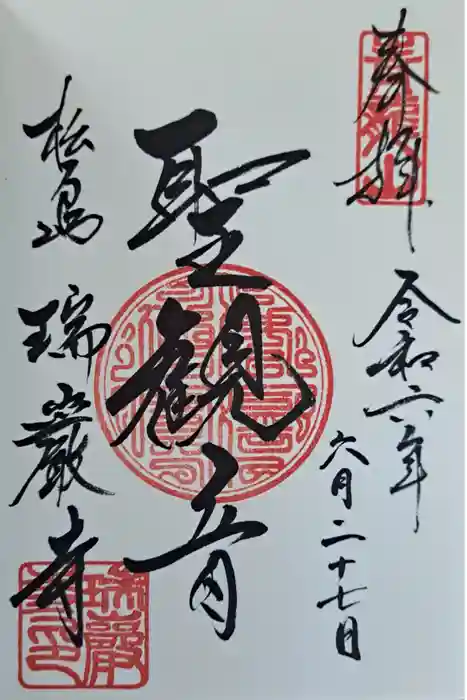 奉拝
令和六年
六月二十七日
聖観音
松島 瑞巌寺
瑞巌